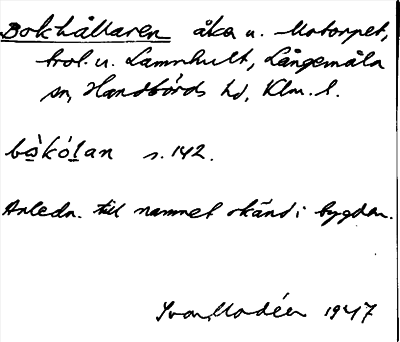 Bokhållaren åker u. Motorpet,
trol. u. Lammhult, Långemåla
sn, Handbörds hd, Klm. l.
bòkólan s. 142.
Anledn. till namnet okänd i bygden.
Ivar Modéer 1947